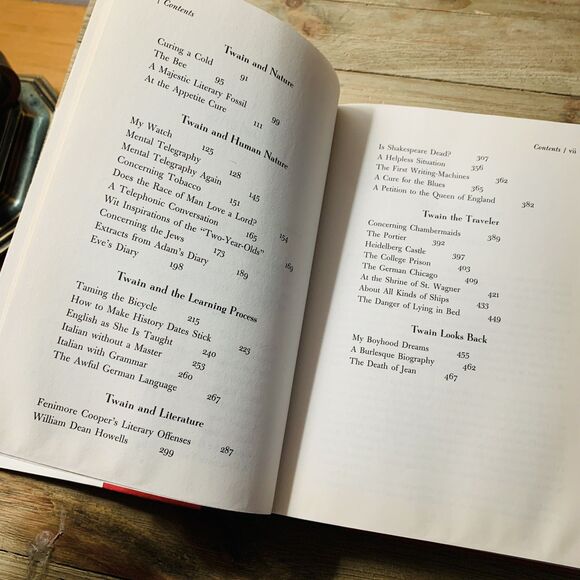 | Contents
Twain and Nature
Curing a Cold 91
The Bee 95
A Majestic Literary Fossil 99
At the Appetite Cure 111
Twain and Human Nature
My Watch 125
Mental Telegraphy 128
Mental Telegraphy Again 145
Concerning Tobacco 151
Does the Race of Man Love a Lord? 154
A Telephonic Conversation 165
Wit Inspirations of the “Two-Year-Olds” 169
Concerning the Jews 173
Extracts from Adam's Diary 189
Eve's Diary 198
Twain and the Learning Process
Taming the Bicycle 215
How to Make History Dates Stick 223
English as She Is Taught 240
Italian without a Master 253
Italian with Grammar 260
The Awful German Language 267
Twain and Literature
Fenimore Cooper's Literary Offenses 287
William Dean Howells 299
Contents | vii
Is Shakespeare Dead? 307
A Helpless Situation 356
The First Writing-Machines 362
A Cure for the Blues 365
A Petition to the Queen of England 382
Twain the Traveler
Concerning Chambermaids 389
The Portier 392
Heidelberg Castle 397
The College Prison 403
The German Chicago 409
At the Shrine of St. Wagner 421
About All Kinds of Ships 433
The Danger of Lying in Bed 449
Twain Looks Back
My Boyhood Dreams 455
A Burlesque Biography 462
The Death of Jean 467